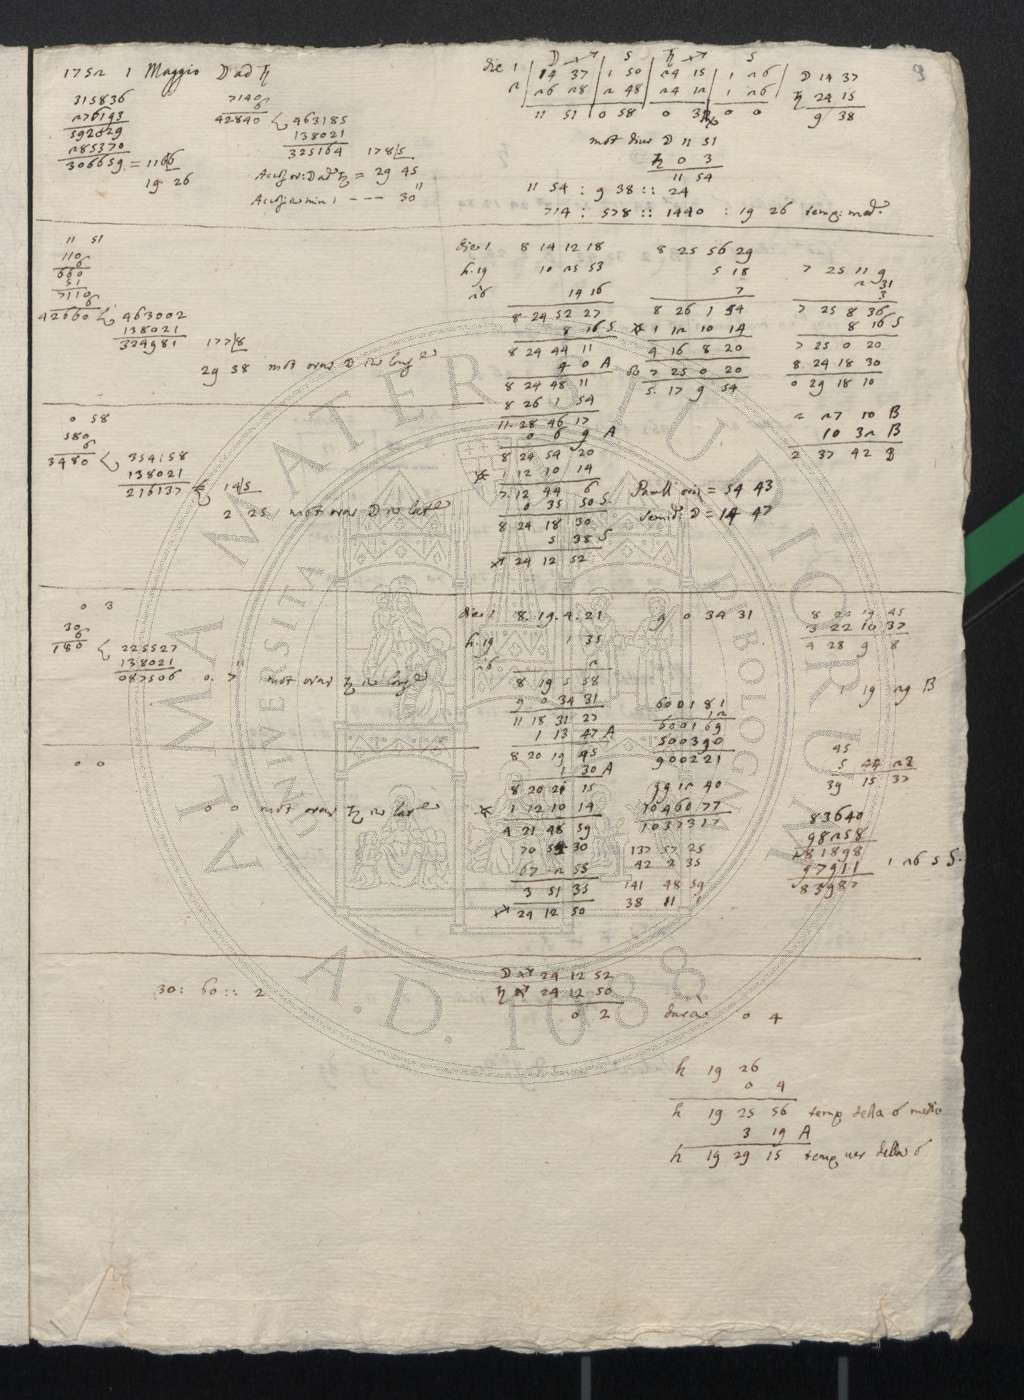 1752 1 Maggio ☽ ad ♄
315836
276193
592029
285370
306659 = 1166
19 26
7140
6
42840
463185
138021
325164 178|5
Access or: ☽ ad ♄ = 29 45
Access in min 1 --- 30"
die 1 | 14 37 | 1 50 | 24 15 | 1 26
2 | 26 28 | 2 48 | 24 12 | 1 26
11 51 0 58 0 3 0 0
☽ 14 37
♄ 24 15
9 38
9
mot diur ☽ 11 51
♄ 0 3
11 54
11 54 : 9 38 :: 24
714 : 578 :: 1440 : 19 26 temp: med:
11 51
110
6
660
51
7110
6
42660 463002
138021
324981 177|8
29 38 mot orar ☽ in long
0 58
580
6
3480 354158
138021
216137 14|5
2 25 mot orar ☽ in lat
die 1 8 14 12 18
h. 19 10 25 53
26 14 16
8 24 52 27
8 16 S
8 24 44 11
4 0 A
8 24 48 11
8 26 1 54
11 28 46 17
0 6 9 A
8 24 54 20
1 12 10 14
7 12 44 6
0 35 50 S
8 24 18 30
5 38 S
24 12 52
8 25 56 29
5 18
7
8 26 1 54
1 12 10 14
4 16 8 20
7 25 0 20
5 17 9 54
7 25 11 9
2 31
3
7 25 8 36
8 16 S
7 25 0 20
8 24 18 30
0 29 18 10
2 27 10 B
10 32 B
2 37 42 B
Parall oriz = 54 43
Semid: ☽ = 14 47
0 3
30
6
180 225527
138021
087506 0 7" mot orar ♄ in long
0 0
0 0 mot orar ♄ in lat
die 1 8 19 4 21
h. 19 1 35
26 2
8 19 5 58
9 0 34 31
11 18 31 27
1 13 47 A
8 20 19 45
1 30 A
8 20 21 15
1 12 10 14
4 21 48 59
70 54 30
67 2 55
3 51 35
24 12 50
9 0 34 31
600181
12
600169
500390
900221
99 12 40
1046077
1037317
137 57 25
42 2 35
141 48 59
38 11 1
8 20 19 45
3 22 10 37
4 28 9 8
1 19 29 B
45
5 44 23
39 15 37
83640
98258
281898
97911
83987
1 26 5 S.
30 : 60 :: 2
☽ 24 12 52
♄ 24 12 50
0 2
0 4
h 19 26
0 4
h 19 25 56 temp della ☌ medio
3 19 A
h 19 29 15 temp ver della ☌
ALMA MATER STUDIORUM
UNIVERSITÀ DI BOLOGNA
A.D. 1088